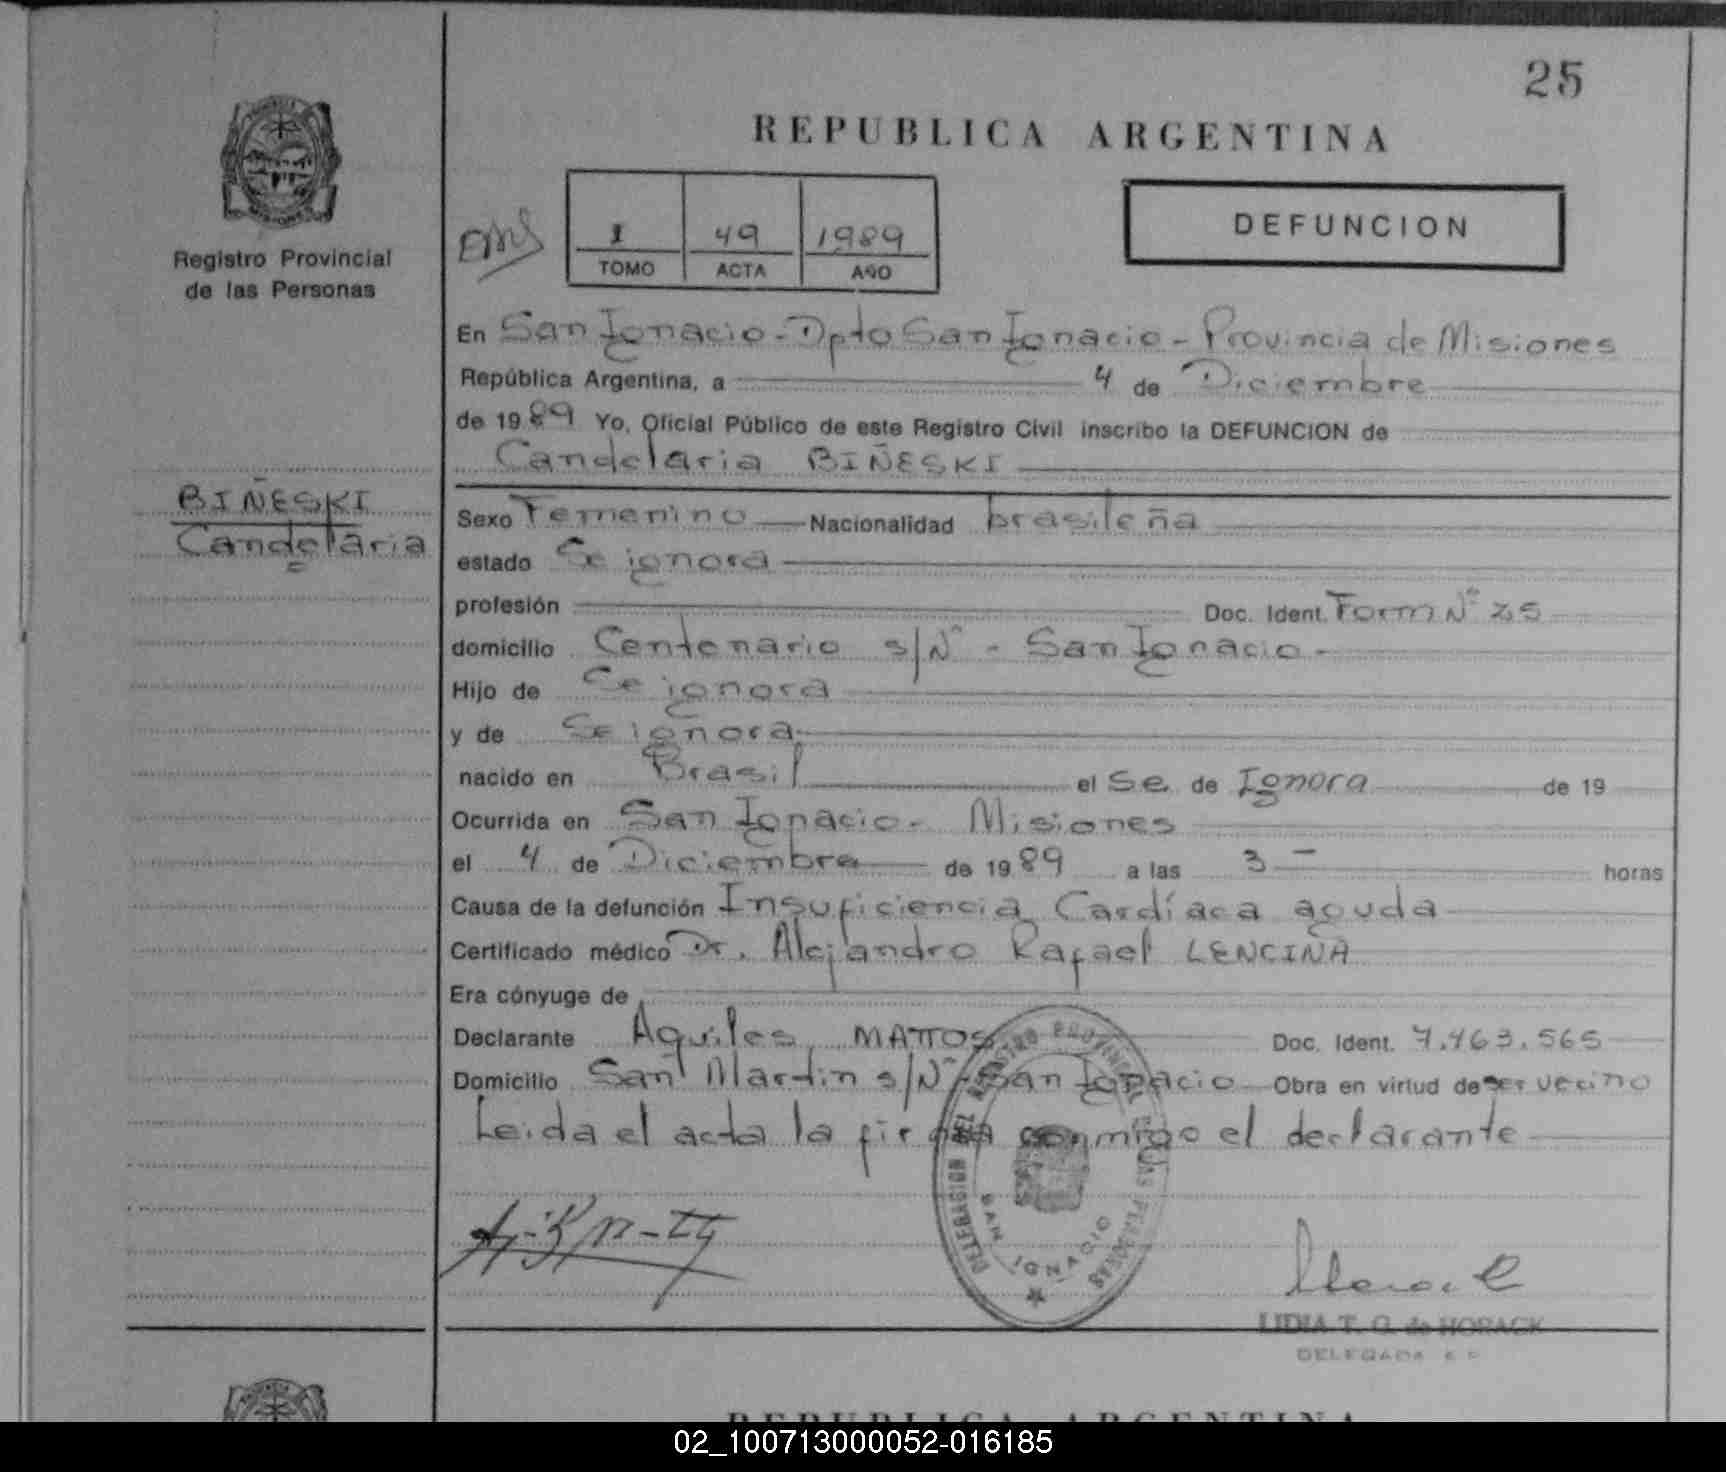 25
REPUBLICA ARGENTINA
Registro Provincial
de las Personas
I 49 1989
TOMO ACTA AÑO
DEFUNCION
En San Ignacio - Dpto San Ignacio - Provincia de Misiones
República Argentina, a 4 de Diciembre
de 1989 Yo, Oficial Público de este Registro Civil inscribo la DEFUNCION de
Candelaria BIÑESKI
BIÑESKI
Candelaria
Sexo Femenino Nacionalidad brasileña
estado Se ignora
profesión Doc. Ident. Form Nº 25
domicilio Centenario s/Nº - San Ignacio -
Hijo de Se ignora
y de Se ignora
nacido en Brasil el Se de Ignora de 19
Ocurrida en San Ignacio - Misiones
el 4 de Diciembre de 1989 a las 3 - horas
Causa de la defunción Insuficiencia Cardíaca aguda
Certificado médico Dr. Alejandro Rafael LENCINA
Era cónyuge de
Declarante Aquiles MATTOS Doc. Ident. 7.463.565
Domicilio San Martin s/Nº - San Ignacio Obra en virtud de ser vecino
Leida el acta la firma conmigo el declarante
DELEGACION DEL REGISTRO PROVINCIAL DE LAS PERSONAS
SAN IGNACIO
LIDIA T. G. de HORACK
DELEGADA
REPUBLICA ARGENTINA
02_100713000052-016185